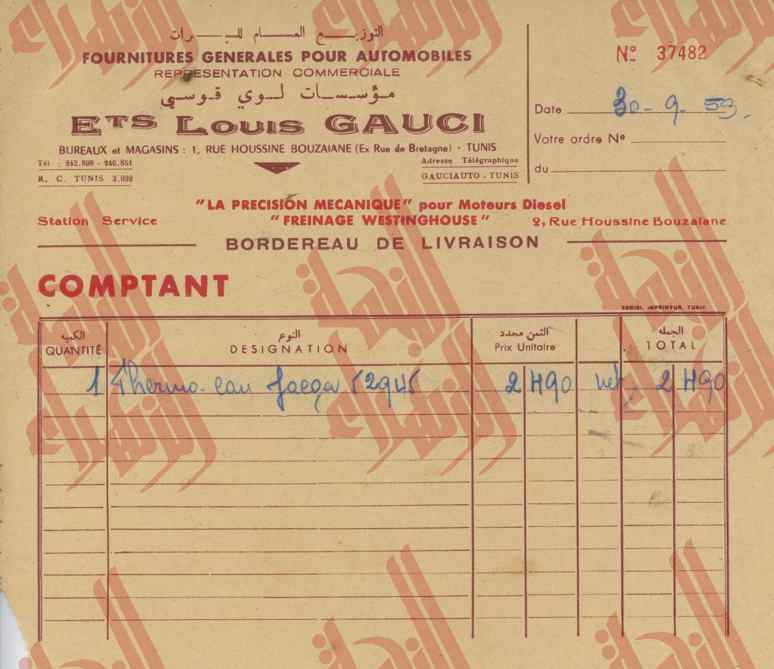 التوزيــع العــام للسيــرات
FOURNITURES GENERALES POUR AUTOMOBILES
REPRESENTATION COMMERCIALE
مـؤسـسـات لـوي قـوسـي
ETS LOUIS GAUCI
BUREAUX et MAGASINS : 1, RUE HOUSSINE BOUZAIANE (Ex Rue de Bretagne) - TUNIS
R. C. TUNIS
Adresse Télégraphique
GAUCIAUTO - TUNIS
No 37482
Date 30-9-59.
Votre ordre No
du
"LA PRECISION MECANIQUE" pour Moteurs Diesel
Station Service "FREINAGE WESTINGHOUSE" 2, Rue Houssine Bouzaiane
BORDEREAU DE LIVRAISON
COMPTANT
الكمية النوع الثمن محدد الجمله
QUANTITÉ DESIGNATION Prix Unitaire TOTAL
1 Thermo. eau Jaeger 52945 2 490 net 2 490